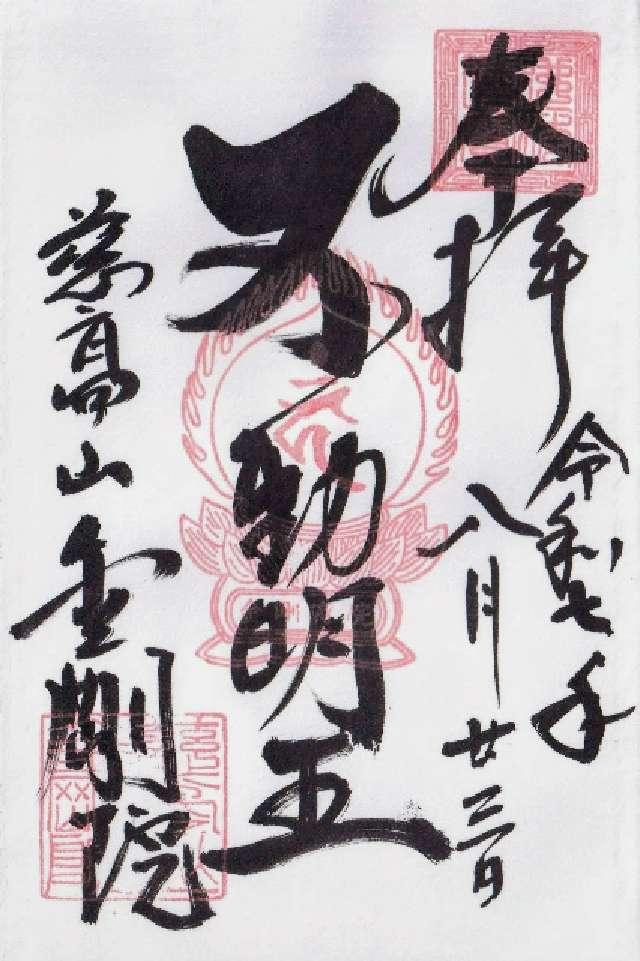 奉拝
令和七年
八月廿三日
不動明王
慈高山
金剛院